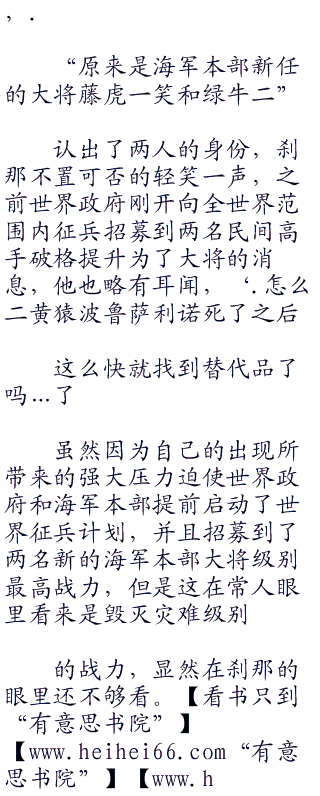 ，．
“原来是海军本部新任
的大将藤虎一笑和绿牛二”
认出了两人的身份，刹
那不置可否的轻笑一声，之
前世界政府刚开向全世界范
围内征兵招募到两名民间高
手破格提升为了大将的消
息，他也略有耳闻，‘．怎么
二黄猿波鲁萨利诺死了之后
这么快就找到替代品了
吗…了
虽然因为自己的出现所
带来的强大压力迫使世界政
府和海军本部提前启动了世
界征兵计划，并且招募到了
两名新的海军本部大将级别
最高战力，但是这在常人眼
里看来是毁灭灾难级别
的战力，显然在刹那的
眼里还不够看。【看书只到
“有意思书院”】
【www.heihei66.com“有意
思书院”】【www.h